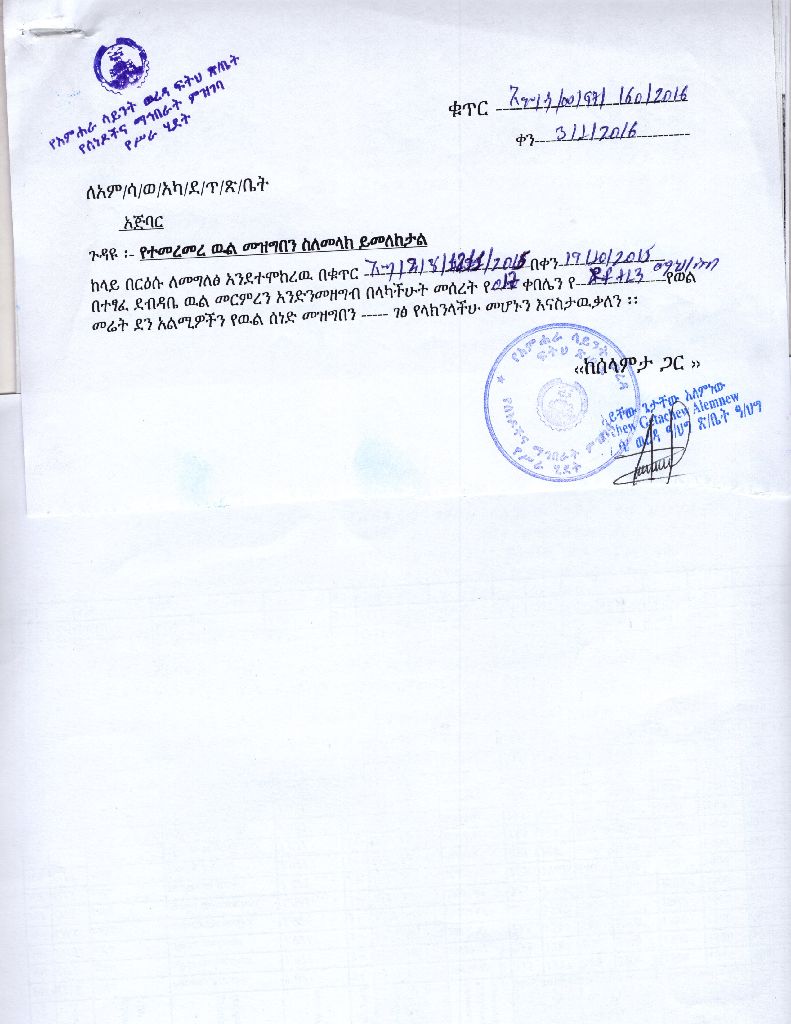 የአምሐራ ሳይንት ወረዳ ፍትህ ጽ/ቤት
የሰነዶችና ማኅበራት ምዝገባ
የሥራ ሂደት
ቁጥር 160/2016
ቀን 3/1/2016
ለአም/ሳ/ወ/አካ/ደ/ጥ/ጽ/ቤት
አጅባር
ጉዳዩ :- የተመረመረ ዉል መዝግበን ስለመላክ ይመለከታል
ከላይ በርዕሱ ለመግለፅ እንደተሞከረዉ በቁጥር /2015 በቀን 19/10/2015
በተፃፈ ደብዳቤ ዉል መርምረን እንድንመዘግብ በላካችሁት መሰረት የ017 ቀበሌን የ የወል
መሬት ደን አልሚዎችን የዉል ሰነድ መዝግበን ----- ገፅ የላክንላችሁ መሆኑን እናስታዉቃለን ፡፡
‹‹ከሰላምታ ጋር ››
የአምሐራ ሳይንት ወረዳ
ፍትህ ጽ/ቤት
የሰነዶችና ማኅበራት ምዝገባ
የሥራ ሂደት
ጌታቸው አለምነው
Getachew Alemnew
ወረዳ ዓ/ህግ ጽ/ቤት ዓ/ህግ